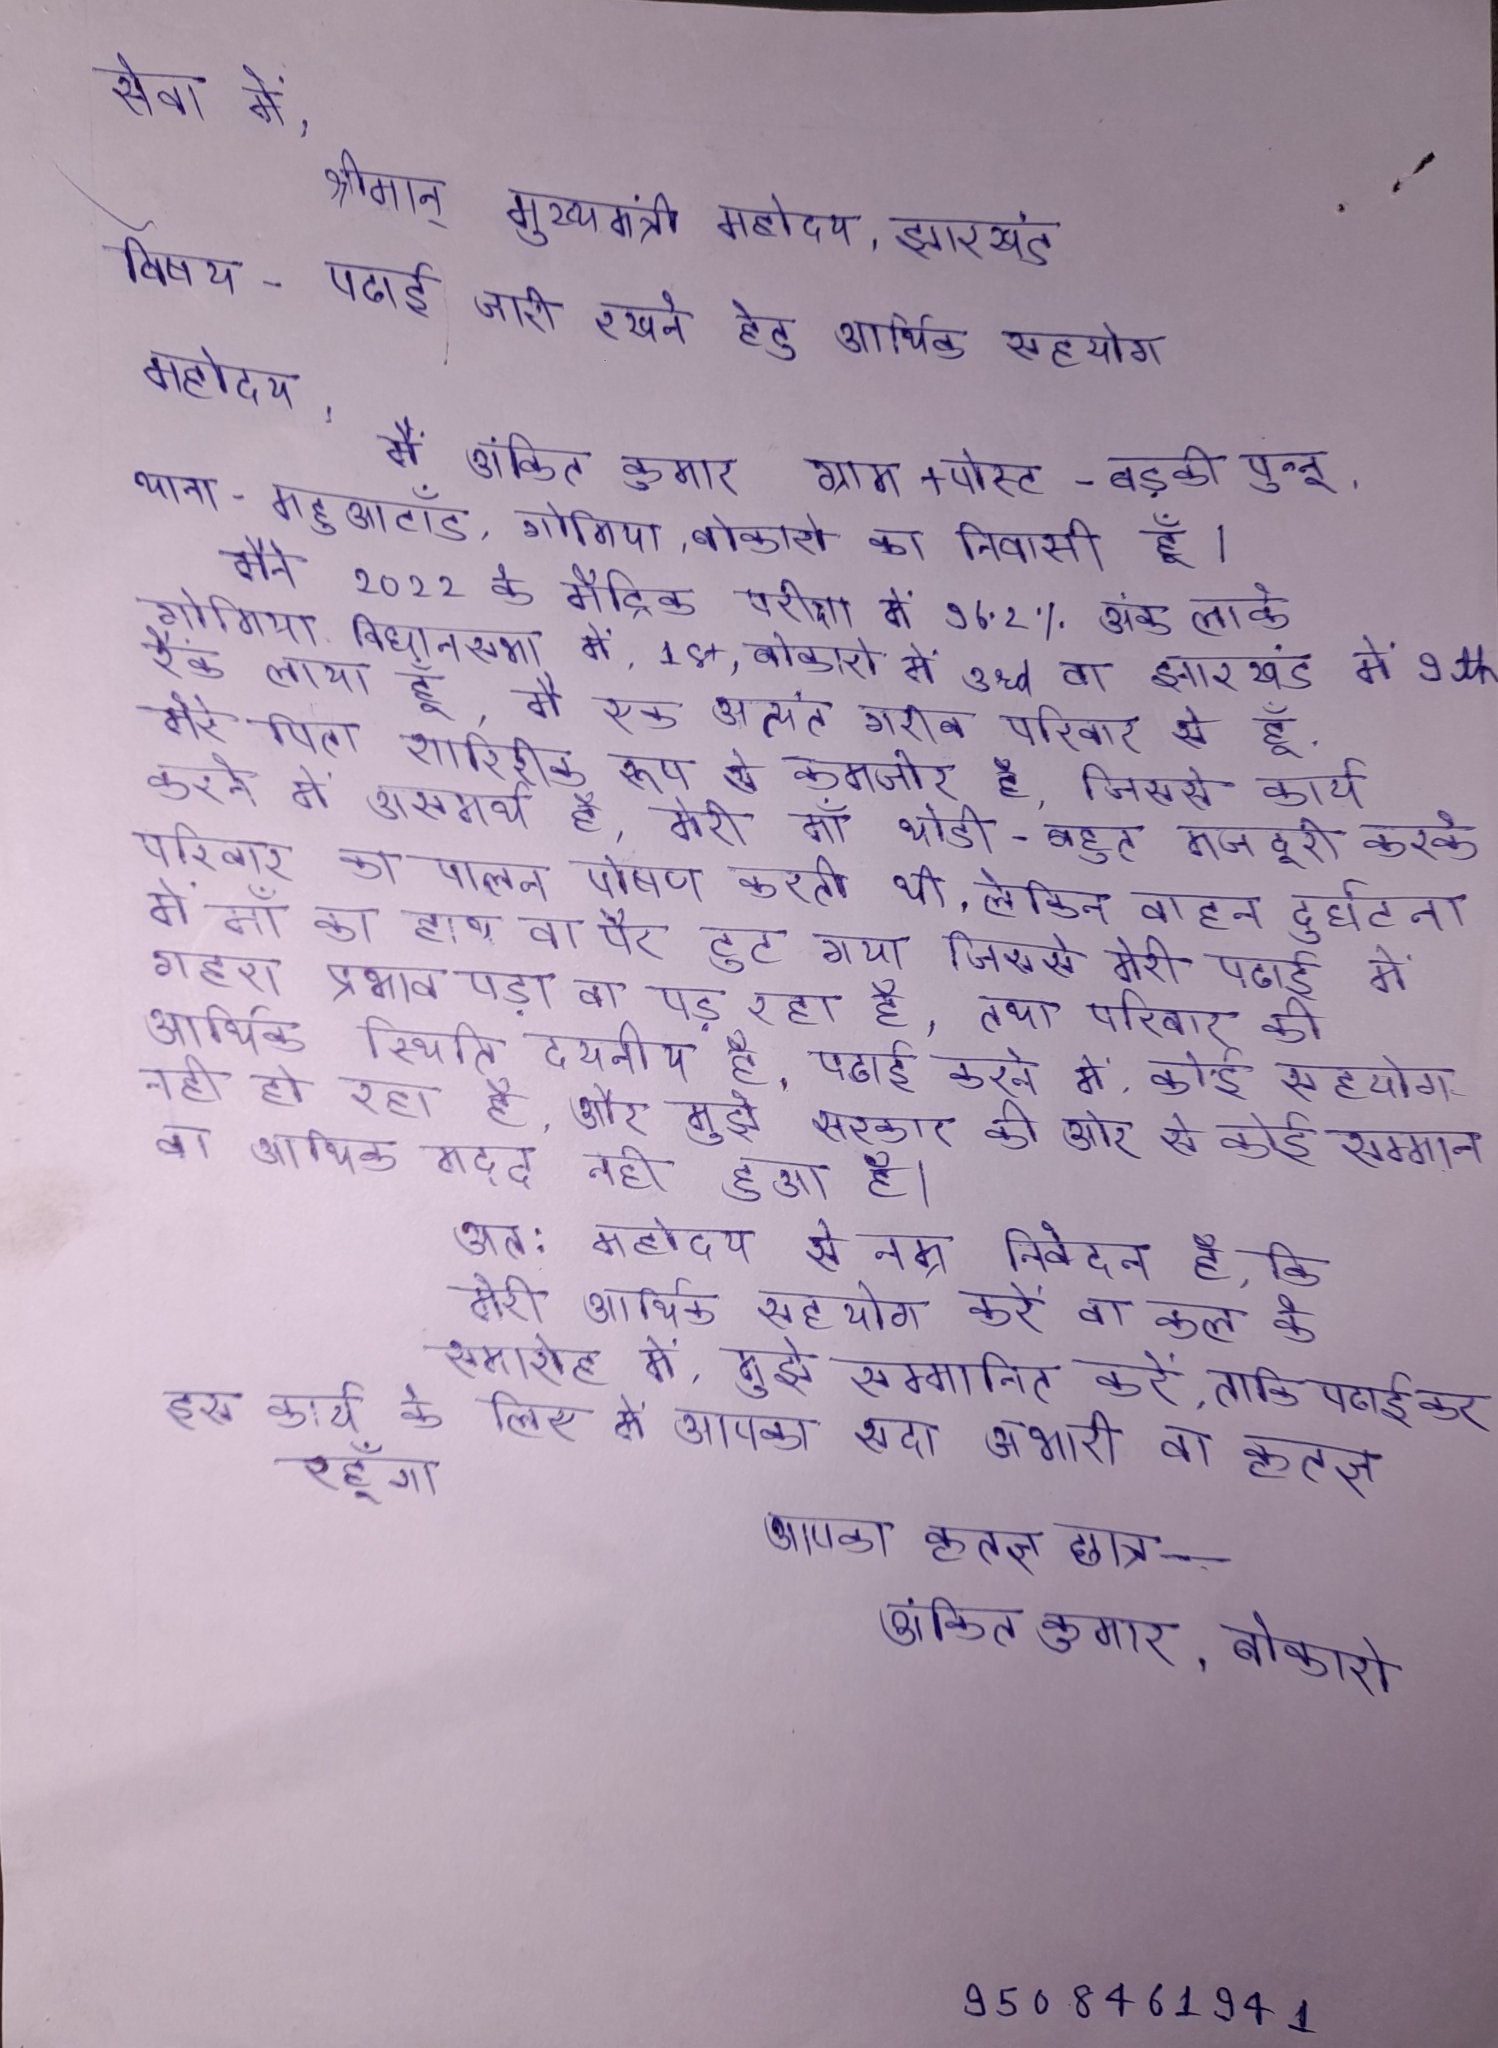 सेवा में,
श्रीमान् मुख्यमंत्री महोदय, झारखंड
विषय - पढाई जारी रखने हेतु आर्थिक सहयोग
महोदय,
मैं अंकित कुमार ग्राम + पोस्ट - बड़की पुन्नू,
थाना - महुआटाँड, गोमिया, बोकारो का निवासी हूँ।
मैने 2022 के मैट्रिक परीक्षा में 96.2% अंक लाके
गोमिया विधानसभा में, 1st, बोकारो में 3rd वा झारखंड में 9th
रैंक लाया हूँ, मै एक अत्यंत गरीब परिवार से हूँ.
मेरे पिता शारिरीक रूप से कमजोर है, जिससे कार्य
करने में असमर्थ है, मेरी माँ थोडी - बहुत मजदूरी करके
परिवार का पालन पोषण करती थी, लेकिन वाहन दुर्घटना
में माँ का हाथ वा पैर टुट गया जिससे मेरी पढाई में
गहरा प्रभाव पड़ा वा पड़ रहा है, तथा परिवार की
आर्थिक स्थिति दयनीय है, पढाई करने में, कोई सहयोग
नही हो रहा है, और मुझे सरकार की ओर से कोई सम्मान
वा आर्थिक मद्द नही हुआ है।
अतः महोदय से नम्र निवेदन है, कि
मेरी आर्थिक सहयोग करें वा कल के
समारोह में, मुझे सम्मानित करें, ताकि पढाई कर
इस कार्य के लिए मैं आपका सदा अभारी वा कृतज्ञ
रहूँगा
आपका कृतज्ञ छात्र —
अंकित कुमार, बोकारो
9508461941